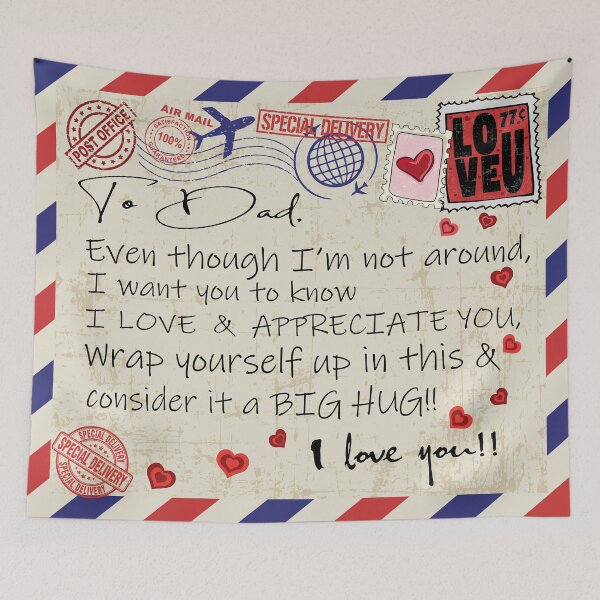 POST OFFICE
AIR MAIL
SATISFACTION
100%
GUARANTEED
SPECIAL DELIVERY
77¢
LO
VEU
To Dad.
Even though I'm not around,
I want you to know
I LOVE & APPRECIATE YOU,
Wrap yourself up in this &
consider it a BIG HUG!!
I love you!!
SPECIAL DELIVERY
SPECIAL DELIVERY
SPECIAL DELIVERY